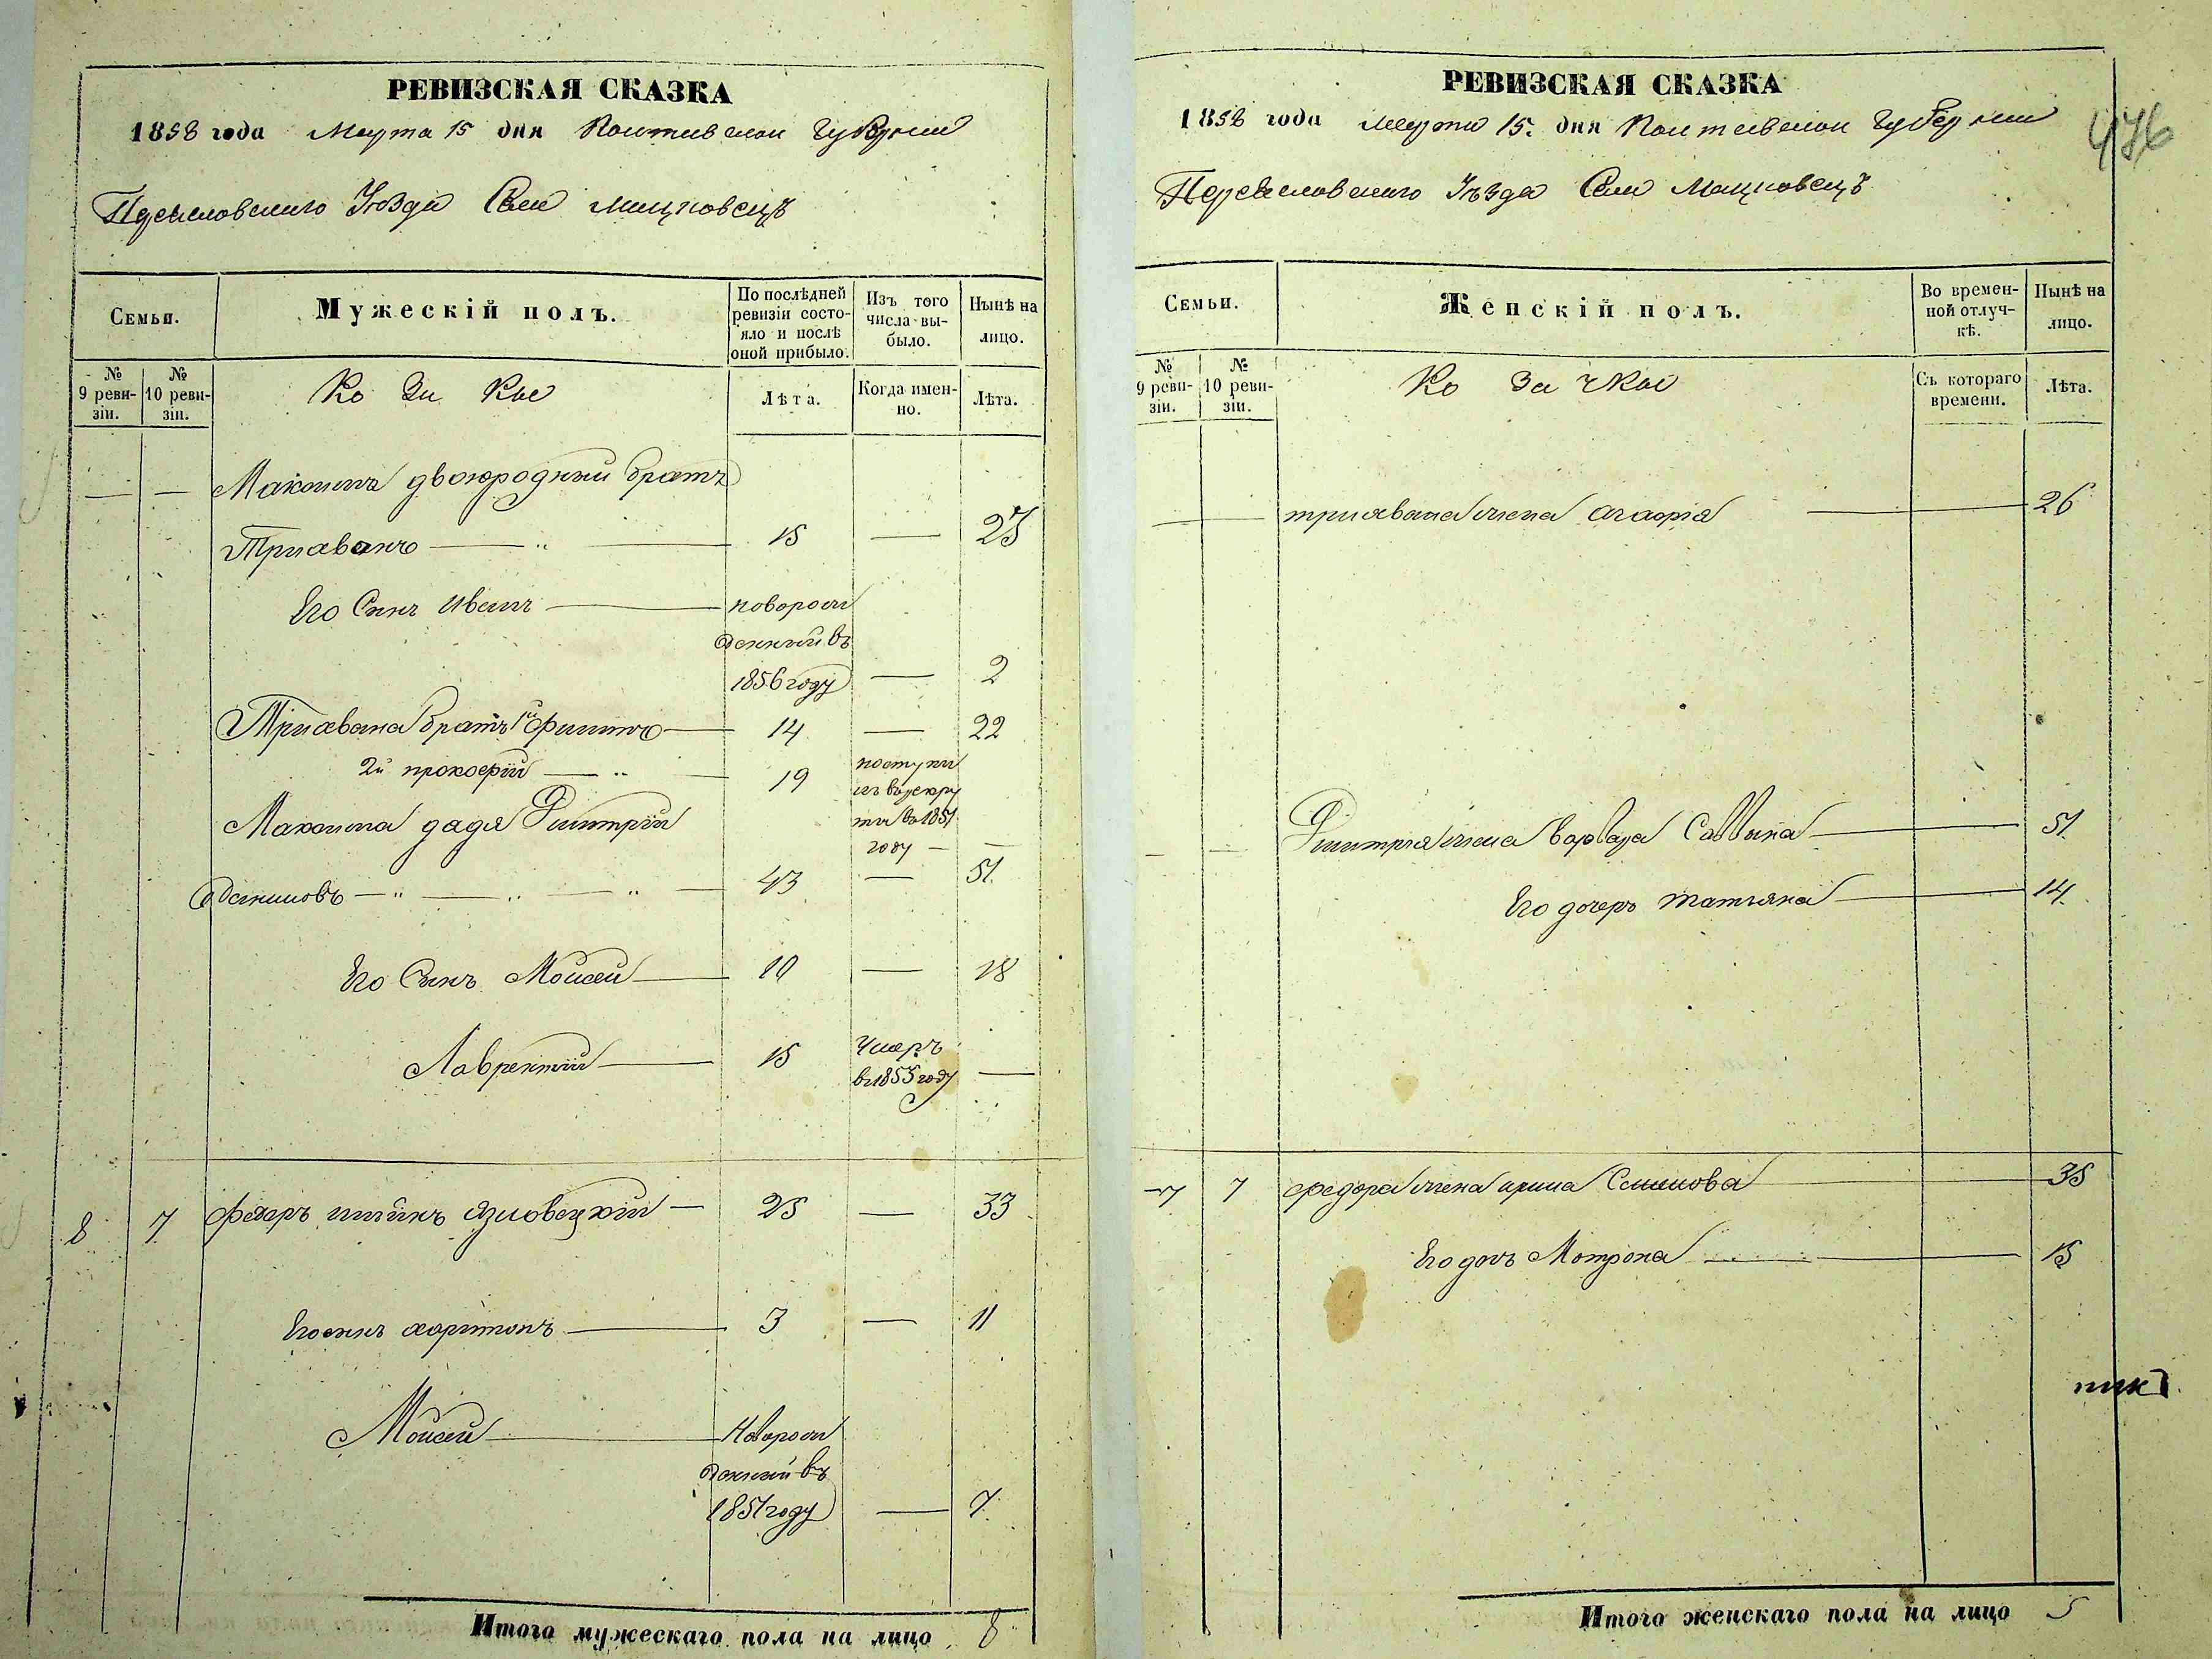 РЕВИЗСКАЯ СКАЗКА
1858 года Марта 15 дня Полтавской Губернии
Переяславскаго Уѣзда Села Мацковецъ
Семьи.
Мужескій полъ.
По послѣдней ревизіи состояло и послѣ оной прибыло.
Изъ того числа выбыло.
Нынѣ на лицо.
№ 9 ревизіи.
№ 10 ревизіи.
Ко за кы
Лѣта.
Когда именно.
Лѣта.
— — Максима двоюродный братъ
Трифванъ — " — 15 — 23
Его Сынъ Иванъ — новорож
денный въ
1856 году — 2
Трифвана братъ 1й Филипъ — 14 — 22
2й прокофій — " — 19 поступи
лъ въ рекру
ты въ 1851
году — —
Максима дядя Дмитрій
Даниловъ — " — " — " — 43 — 51
Его Сынъ Моисей — 10 — 18
Лаврентій — 15 Умеръ
въ 1855 году —
8 7 Федоръ язловецкій — 25 — 33
Его сынъ харитонъ — 3 — 11
Моисей — Новорож
денный въ
1851 году — 7
Итого мужескаго пола на лицо 8
РЕВИЗСКАЯ СКАЗКА
1858 года Марта 15. дня Полтавской Губернии
476
Переяславскаго Уѣзда Села Мацковецъ
Семьи.
Женскій полъ.
Во временной отлучкѣ.
Нынѣ на лицо.
№ 9 ревизіи.
№ 10 ревизіи.
Ко за чкы
Съ котораго времени.
Лѣта.
— трифвана жена агафія — 26
— — Дмитрія жена варвара Саввина — 51
Его дочеръ татьяна — 14
7 7 федора жена ирина Семенова — 35
Его дочь Мотрона — 15
Итого женскаго пола на лицо 5